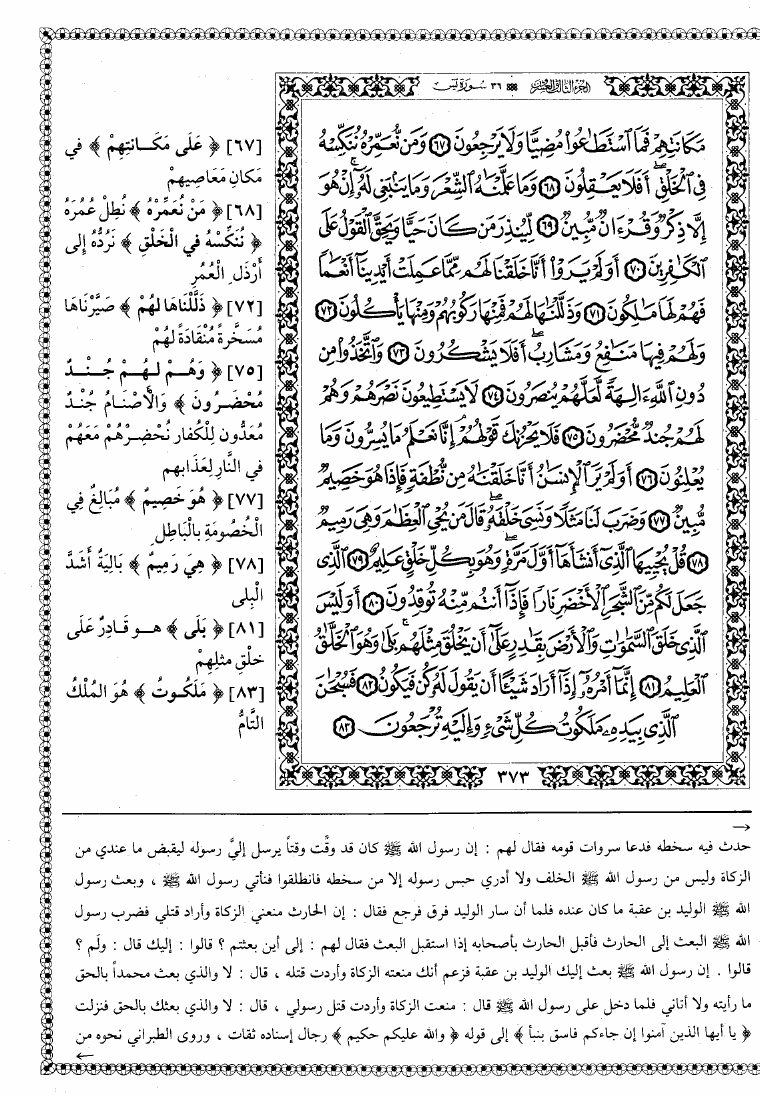 الجزء الثالث والعشرون ٣٦ سورة يس
مَكَانَتِهِمْ فَمَا ٱسْتَطَٰعُوا۟ مُضِيًّا وَلَا يَرْجِعُونَ ٦٧ وَمَن نُّعَمِّرْهُ نُنَكِّسْهُ
فِى ٱلْخَلْقِ أَفَلَا يَعْقِلُونَ ٦٨ وَمَا عَلَّمْنَٰهُ ٱلشِّعْرَ وَمَا يَنۢبَغِى لَهُۥٓ إِنْ هُوَ
إِلَّا ذِكْرٌ وَقُرْءَانٌ مُّبِينٌ ٦٩ لِّيُنذِرَ مَن كَانَ حَيًّا وَيَحِقَّ ٱلْقَوْلُ عَلَى
ٱلْكَٰفِرِينَ ٧٠ أَوَلَمْ يَرَوْا۟ أَنَّا خَلَقْنَا لَهُم مِّمَّا عَمِلَتْ أَيْدِينَآ أَنْعَٰمًا
فَهُمْ لَهَا مَٰلِكُونَ ٧١ وَذَلَّلْنَٰهَا لَهُمْ فَمِنْهَا رَكُوبُهُمْ وَمِنْهَا يَأْكُلُونَ ٧٢
وَلَهُمْ فِيهَا مَنَٰفِعُ وَمَشَارِبُ أَفَلَا يَشْكُرُونَ ٧٣ وَٱتَّخَذُوا۟ مِن
دُونِ ٱللَّهِ ءَالِهَةً لَّعَلَّهُمْ يُنصَرُونَ ٧٤ لَا يَسْتَطِيعُونَ نَصْرَهُمْ وَهُمْ
لَهُمْ جُندٌ مُّحْضَرُونَ ٧٥ فَلَا يَحْزُنكَ قَوْلُهُمْ إِنَّا نَعْلَمُ مَا يُسِرُّونَ وَمَا
يُعْلِنُونَ ٧٦ أَوَلَمْ يَرَ ٱلْإِنسَٰنُ أَنَّا خَلَقْنَٰهُ مِن نُّطْفَةٍ فَإِذَا هُوَ خَصِيمٌ
مُّبِينٌ ٧٧ وَضَرَبَ لَنَا مَثَلًا وَنَسِىَ خَلْقَهُۥ قَالَ مَن يُحْىِ ٱلْعِظَٰمَ وَهِىَ رَمِيمٌ
٧٨ قُلْ يُحْيِيهَا ٱلَّذِىٓ أَنشَأَهَآ أَوَّلَ مَرَّةٍ وَهُوَ بِكُلِّ خَلْقٍ عَلِيمٌ ٧٩ ٱلَّذِى
جَعَلَ لَكُم مِّنَ ٱلشَّجَرِ ٱلْأَخْضَرِ نَارًا فَإِذَآ أَنتُم مِّنْهُ تُوقِدُونَ ٨٠ أَوَلَيْسَ
ٱلَّذِى خَلَقَ ٱلسَّمَٰوَٰتِ وَٱلْأَرْضَ بِقَٰدِرٍ عَلَىٰٓ أَن يَخْلُقَ مِثْلَهُم بَلَىٰ وَهُوَ ٱلْخَلَّٰقُ
ٱلْعَلِيمُ ٨١ إِنَّمَآ أَمْرُهُۥٓ إِذَآ أَرَادَ شَيْـًٔا أَن يَقُولَ لَهُۥ كُن فَيَكُونُ ٨٢ فَسُبْحَٰنَ
ٱلَّذِى بِيَدِهِۦ مَلَكُوتُ كُلِّ شَىْءٍ وَإِلَيْهِ تُرْجَعُونَ ٨٣
٣٧٣
[٦٧] ﴿ عَلَى مَكَـانَتِهِمْ ﴾ في
مَكَانِ مَعَاصِيهِمْ
[٦٨] ﴿ مَنْ نُعَمِّرْهُ ﴾ نُطِلْ عُمُرَهُ
﴿ نُنَكِّسْهُ في الْخَلْقِ ﴾ نَرُدُّهُ إِلى
أَرْذَلِ الْعُمُرِ
[٧٢] ﴿ ذَلَّلْنَاهَا لَهُمْ ﴾ صَيَّرْنَاهَا
مُسَخَّرةً مُنْقَادَةً لَهُمْ
[٧٥] ﴿ وَهُــمْ لَـهُـمْ جُـنْــدٌ
مُحْضَـرُونَ ﴾ وَالْأَصْنَـامُ جُنْـدٌ
مُعَدُّون لِلْكُفار نُحْضِـرُهُمْ مَعَهُمْ
في النَّارِ لِعَذَابهم
[٧٧] ﴿ هُوَ خَصِيمٌ ﴾ مُبَالِغٌ فِي
الْخُصُومَةِ بِالْبَاطِلِ
[٧٨] ﴿ هِيَ رَمِيمٌ ﴾ بَالِيَةٌ أَشَدَّ
الْبِلى
[٨١] ﴿ بَلَى ﴾ هـو قَـادِرٌ عَلَى
خلْقِ مثلِهِمْ
[٨٣] ﴿ مَلَكُوتُ ﴾ هُوَ المُلْكُ
التَّامُّ
→
حدث فيه سخطه فدعا سروات قومه فقال لهم : إن رسول الله ﷺ كان قد وقَّت وقتاً يرسل إليَّ رسوله ليقبض ما عندي من
الزكاة وليس من رسول الله ﷺ الخلف ولا أدري حبس رسوله إلا من سخطه فانطلقوا فنأتي رسول الله ﷺ ، وبعث رسول
الله ﷺ الوليد بن عقبة ما كان عنده فلما أن سار الوليد فرق فرجع فقال : إن الحارث منعني الزكاة وأراد قتلي فضرب رسول
الله ﷺ البعث إلى الحارث فأقبل الحارث بأصحابه إذا استقبل البعث فقال لهم : إلى أين بعثتم ؟ قالوا : إليك قال : ولَم ؟
قالوا . إن رسول الله ﷺ بعث إليك الوليد بن عقبة فزعم أنك منعته الزكاة وأردت قتله ، قال : لا والذي بعث محمداً بالحق
ما رأيته ولا أتاني فلما دخل على رسول الله ﷺ قال : منعت الزكاة وأردت قتل رسولي ، قال : لا والذي بعثك بالحق فنزلت
﴿ يا أيها الذين آمنوا إن جاءكم فاسق بنبأ ﴾ إلى قوله ﴿ والله عليكم حكيم ﴾ رجال إسناده ثقات ، وروى الطبراني نحوه من
←